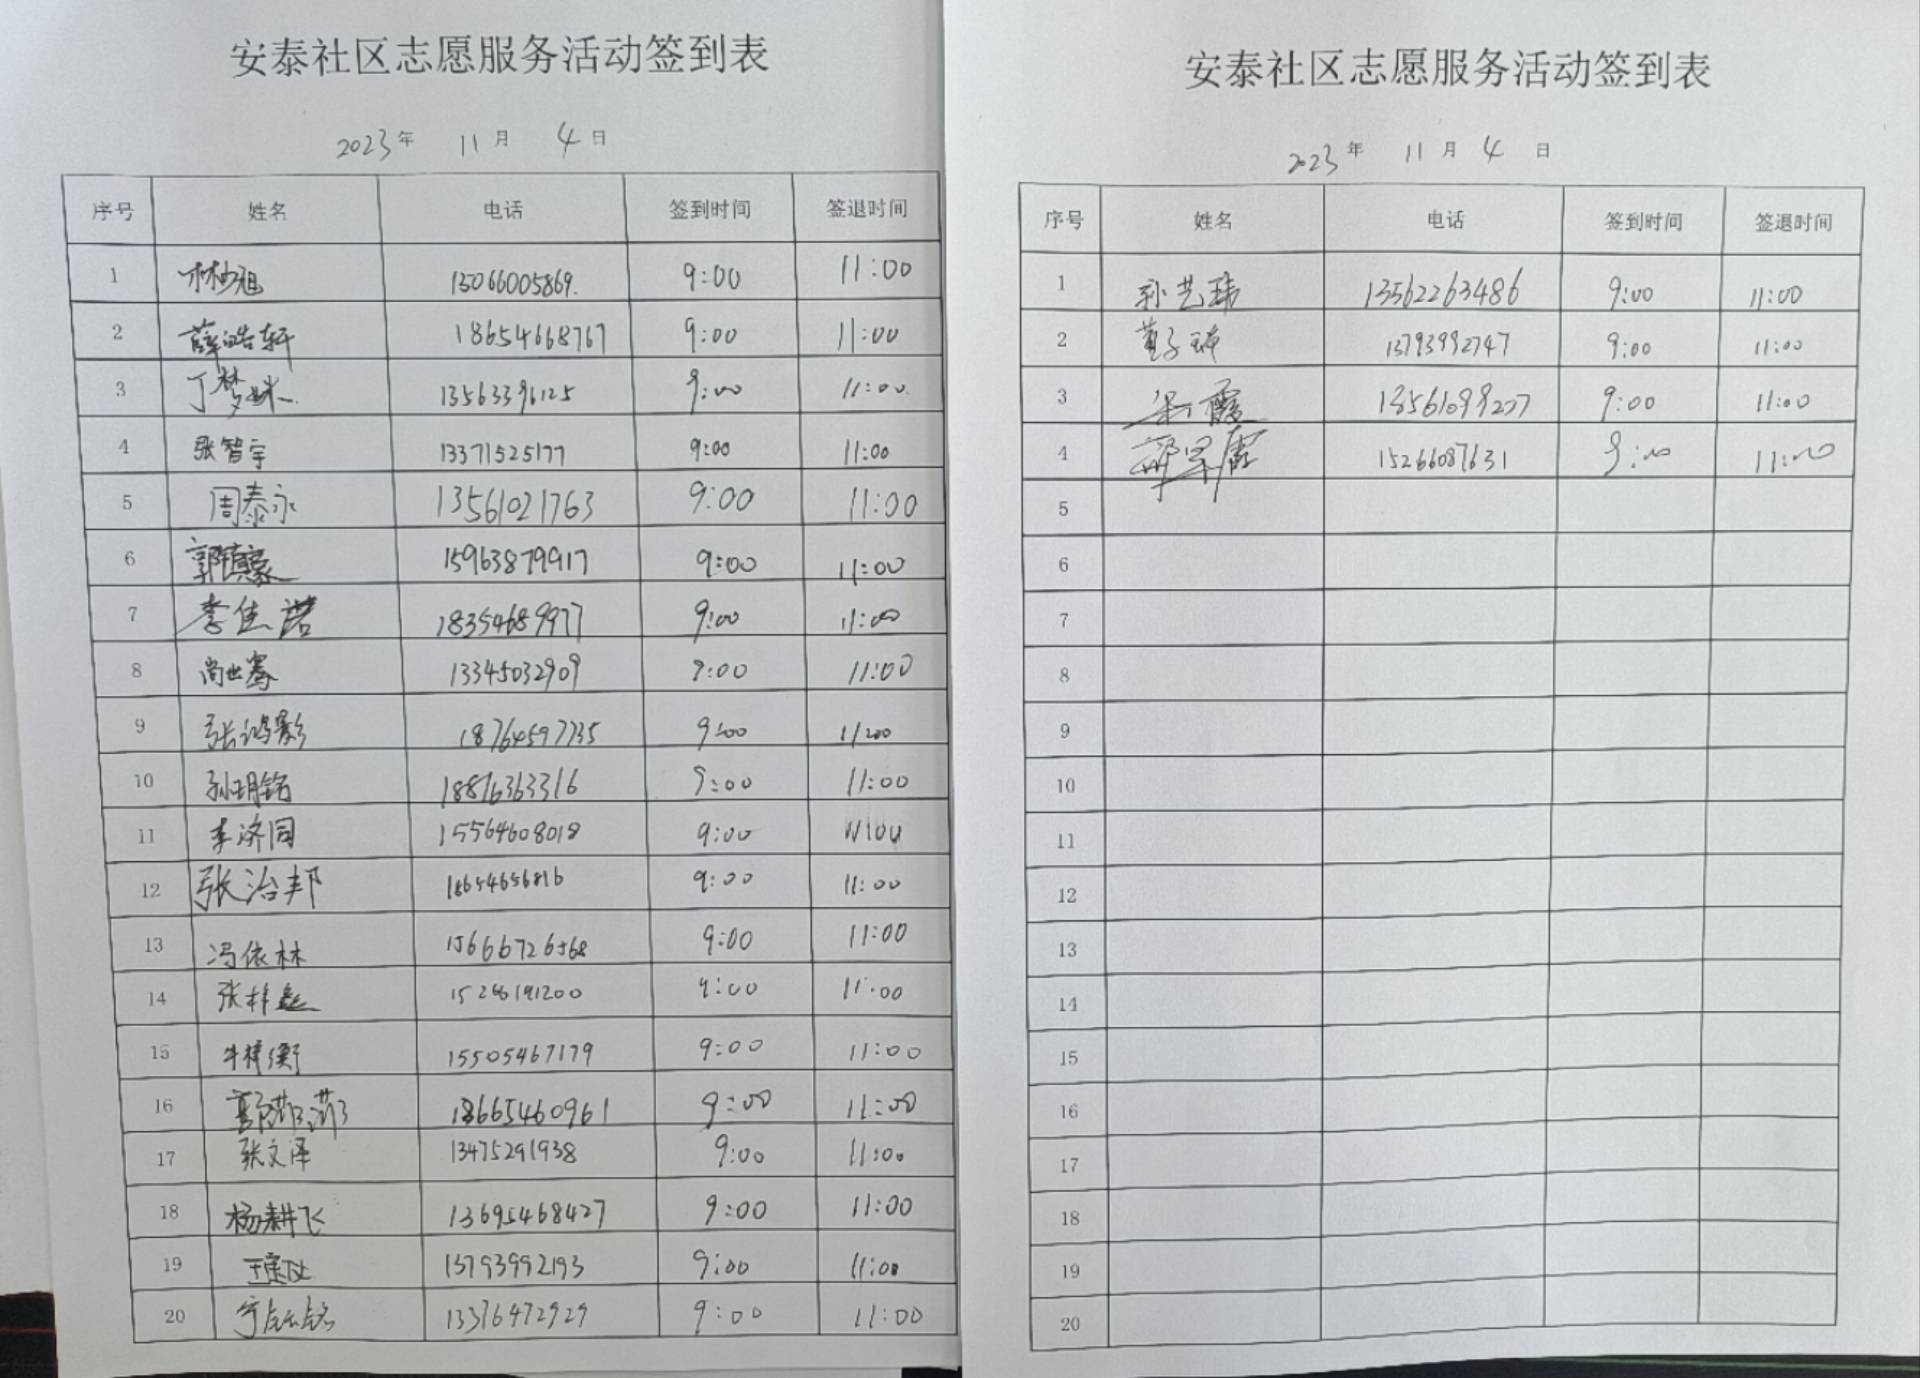 安泰社区志愿服务活动签到表
2023年 11月 4日
序号 姓名 电话 签到时间 签退时间
1 13066005869. 9:00 11:00
2 薛皓轩 18654668767 9:00 11:00
3 丁梦姝 13563396125 9:00 11:00
4 张智宇 13371525177 9:00 11:00
5 周泰永 13561021763 9:00 11:00
6 15963879917 9:00 11:00
7 李佳诺 18354689977 9:00 11:00
8 尚世骞 13345032909 9:00 11:00
9 张鸿影 18764597735 9:00 11:00
10 孙玥铭 18816363316 9:00 11:00
11 李济同 15564608018 9:00
12 张治邦 18654656816 9:00 11:00
13 冯依林 15666726568 9:00 11:00
14 张梓鑫 9:00 11:00
15 牛梓衡 15505467179 9:00 11:00
16 18665460961 9:00 11:00
17 张文泽 13475291938 9:00 11:00
18 杨耕飞 13695468427 9:00 11:00
19 13793992193 9:00 11:00
20 13376472929 9:00 11:00
安泰社区志愿服务活动签到表
2023年 11月 4日
序号 姓名 电话 签到时间 签退时间
1 孙艺玮 13562263486 9:00 11:00
2 13793992747 9:00 11:00
3 13561099207 9:00 11:00
4 15266087631 9:00 11:00
5
6
7
8
9
10
11
12
13
14
15
16
17
18
19
20